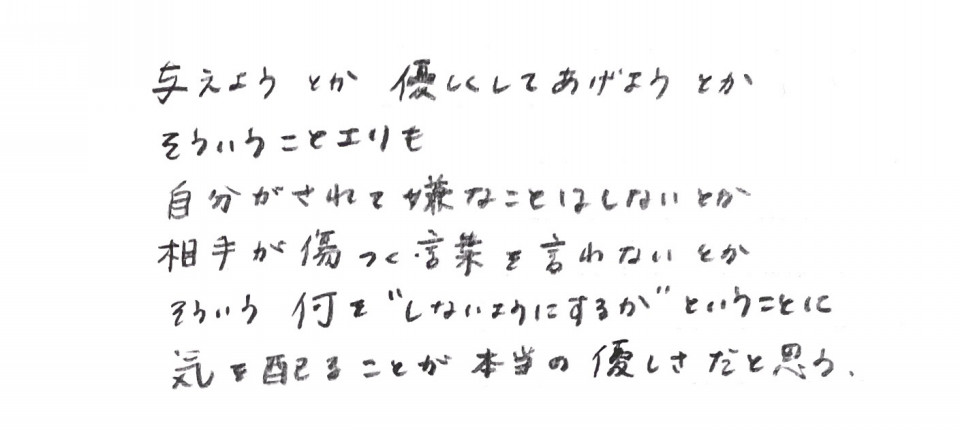 与えようとか 優しくしてあげようとか
そういうことよりも
自分がされて嫌なことはしないとか
相手が傷つく言葉を言わないとか
そういう 何を"しないようにするか"ということに
気を配ることが 本当の優しさだと思う.